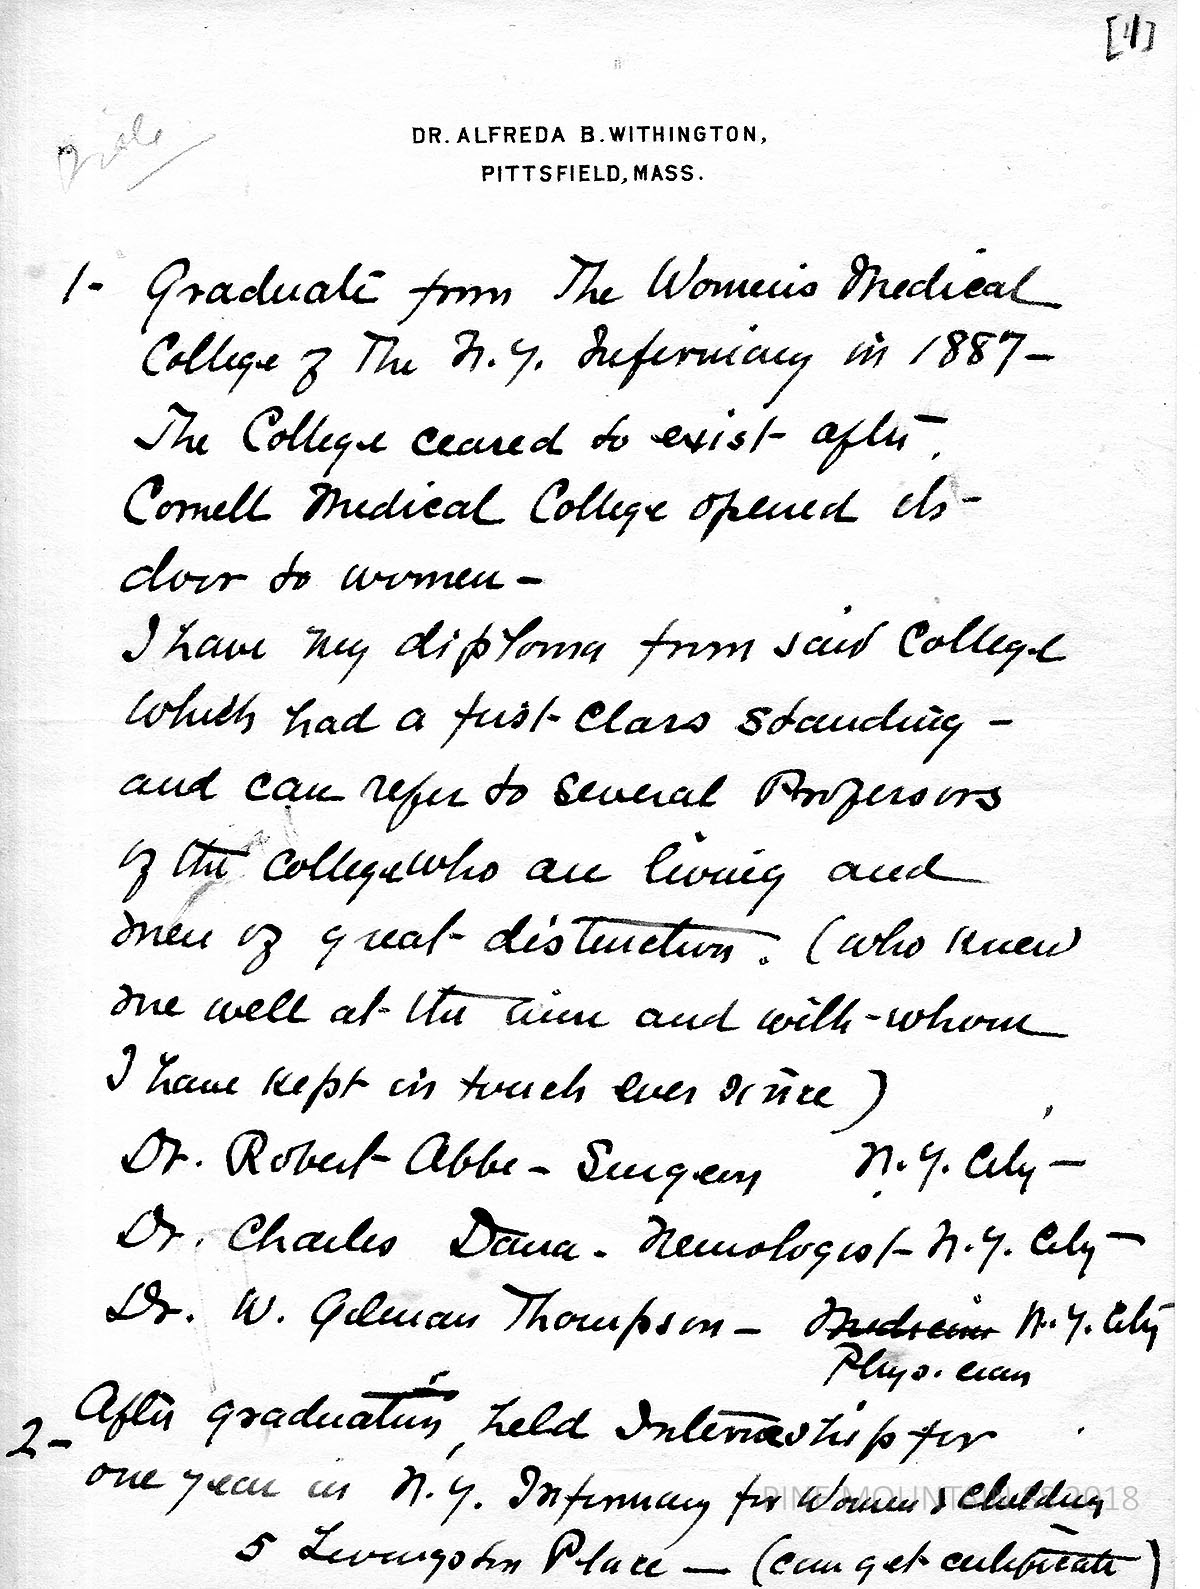 [1]
DR. ALFREDA B. WITHINGTON,
PITTSFIELD, MASS.
1- Graduate from The Women's Medical
College of The N.Y. Infirmary in 1887-
The College ceased to exist after
Cornell Medical College opened its-
door to women-
I have my diploma from said College
which had a first class standing-
and can refer to several Professors
of the College who are living and
men of great distinction. (who knew
me well at the time and with-whom
I have kept in touch ever since)
Dr. Robert Abbe - Surgeon N.Y. City-
Dr. Charles Dana - Neurologist- N.Y. City-
Dr. W. Gilman Thompson - Medicine N.Y. City
Physician
2- After graduation, held Internship for
one year in N.Y. Infirmary for Women & Children
PINE MOUNTAIN 2018
5 Livingston Place - (can get certificate)